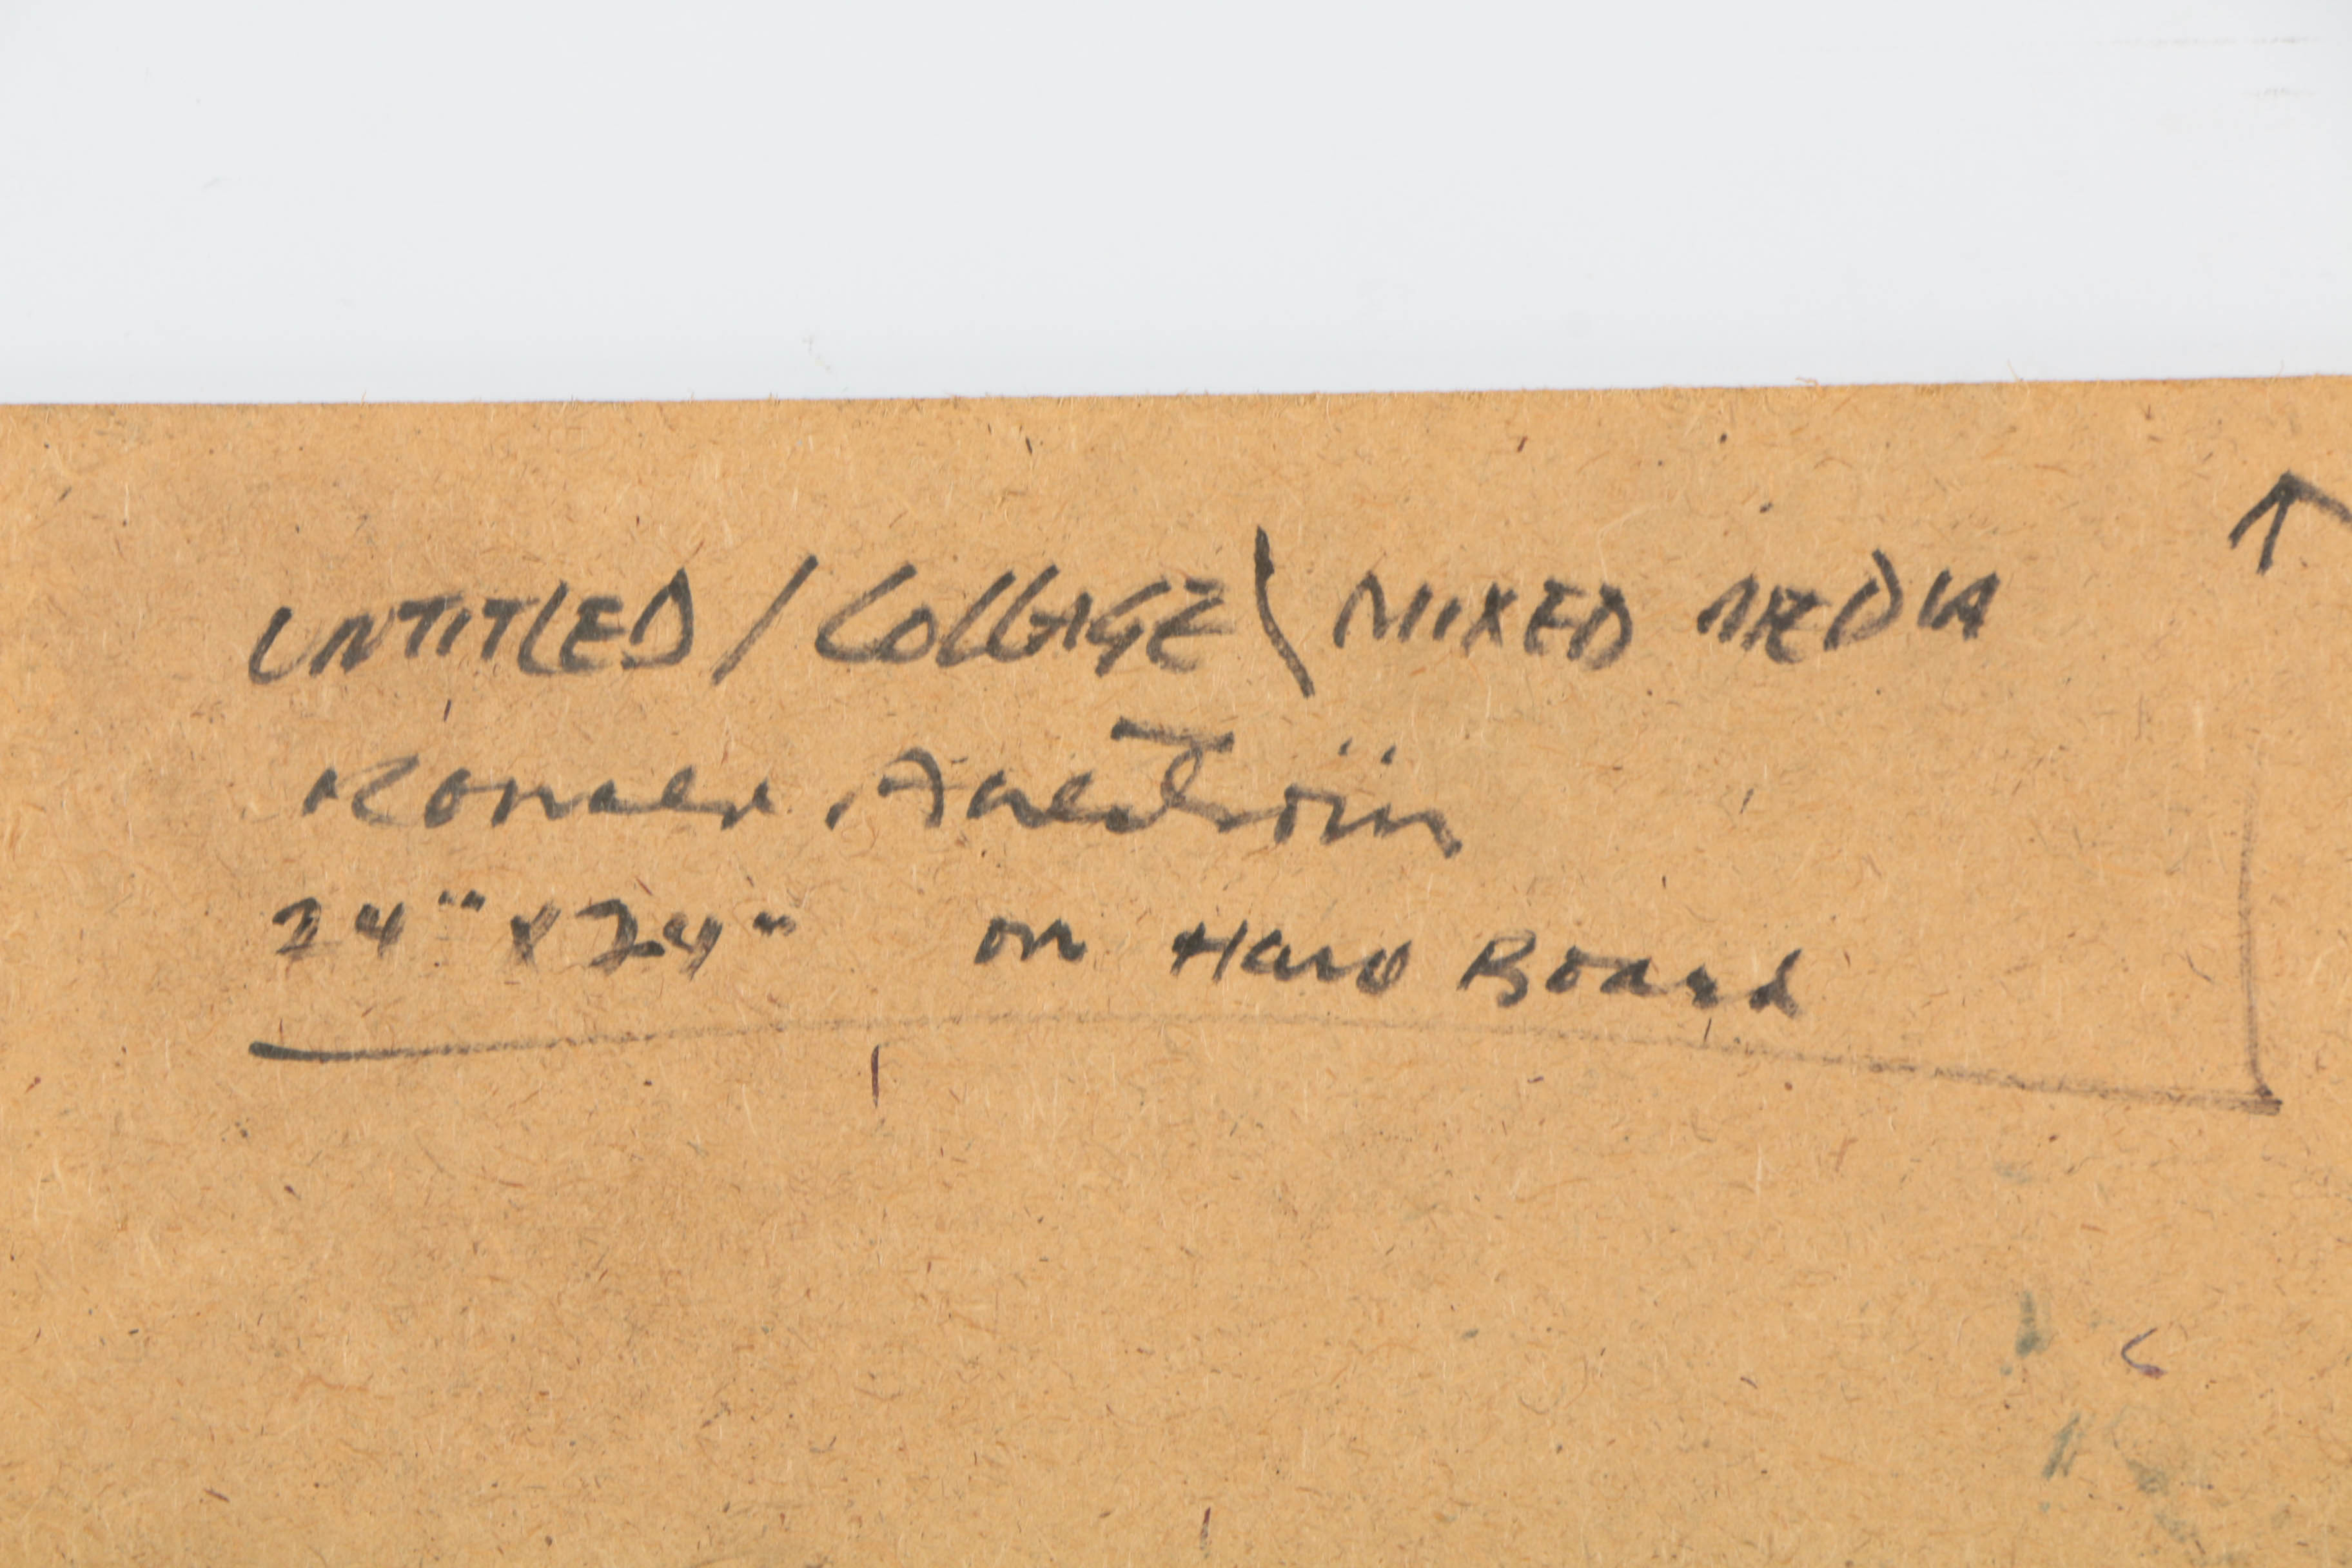 UNTITLED / COLLAGE \ MIXED MEDIA
Ronald Ahlström
24" x 24" on Hard Board